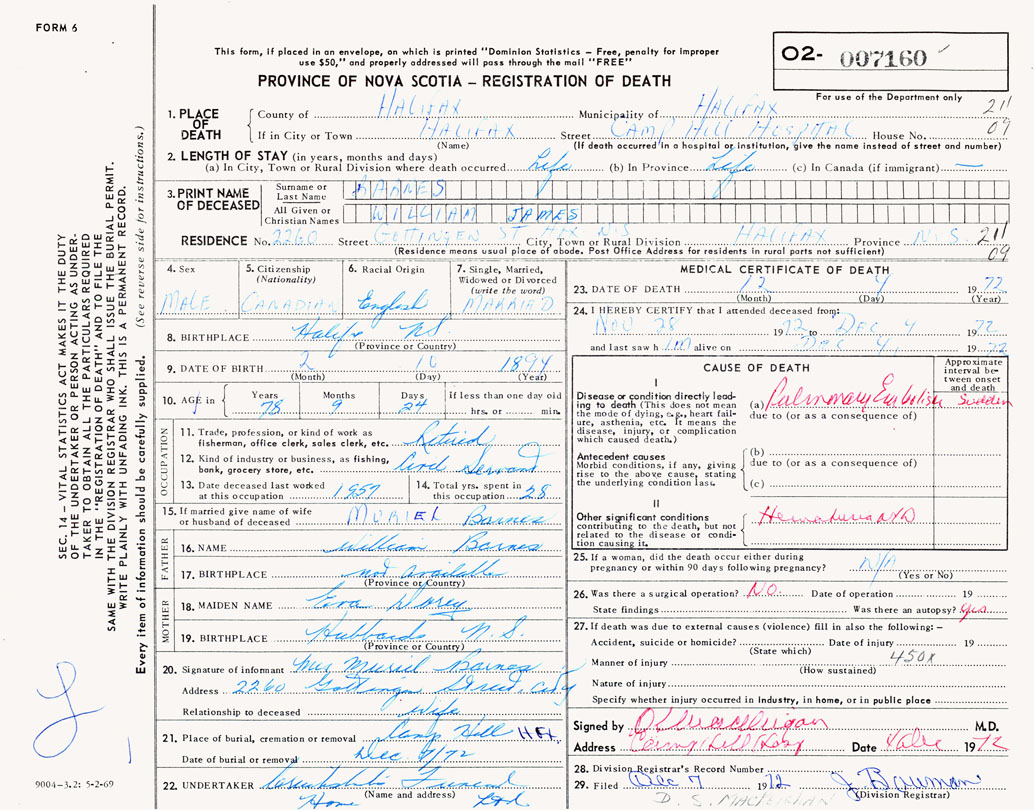 FORM 6
This form, if placed in an envelope, on which is printed "Dominion Statistics – Free, penalty for improper
use $50," and properly addressed will pass through the mail "FREE"
PROVINCE OF NOVA SCOTIA – REGISTRATION OF DEATH
O2- 007160
For use of the Department only
1. PLACE OF DEATH County of HALIFAX Municipality of HALIFAX 211
If in City or Town HALIFAX Street CAMP HILL HOSPITAL House No. 09
(Name) (If death occurred in a hospital or institution, give the name instead of street and number)
2. LENGTH OF STAY (in years, months and days)
(a) In City, Town or Rural Division where death occurred Life (b) In Province Life (c) In Canada (if immigrant) —
3. PRINT NAME OF DECEASED Surname or Last Name BARNES
All Given or Christian Names WILLIAM JAMES
RESIDENCE No. 2260 Street GOTTINGEN ST HFX N.S City, Town or Rural Division HALIFAX Province N.S. 211
(Residence means usual place of abode. Post Office Address for residents in rural parts not sufficient) 09
4. Sex 5. Citizenship (Nationality) 6. Racial Origin 7. Single, Married, Widowed or Divorced (write the word)
MALE CANADIAN English MARRIED
8. BIRTHPLACE Halifx N.S.
(Province or Country)
9. DATE OF BIRTH 2 10 1894
(Month) (Day) (Year)
10. AGE in Years Months Days If less than one day
78 9 24 hrs. or min.
OCCUPATION
11. Trade, profession, or kind of work as fisherman, office clerk, sales clerk, etc. Retired
12. Kind of industry or business, as fishing, bank, grocery store, etc. Civil Servant
13. Date deceased last worked at this occupation 1957 14. Total yrs. spent in this occupation 28
15. If married give name of wife or husband of deceased MURIEL Barnes
FATHER
16. NAME William Barnes
17. BIRTHPLACE not available
(Province or Country)
MOTHER
18. MAIDEN NAME Eva Dorey
19. BIRTHPLACE Hubbards N.S.
(Province or Country)
20. Signature of informant Mrs Muriel Barnes
Address 2260 Gottingen Street. City
Relationship to deceased wife
21. Place of burial, cremation or removal Camp Hill HFX
Date of burial or removal Dec 7/72
22. UNDERTAKER Funeral
(Name and address)
Home Ltd
MEDICAL CERTIFICATE OF DEATH
23. DATE OF DEATH 12 4 1972
(Month) (Day) (Year)
24. I HEREBY CERTIFY that I attended deceased from:
NOV 28 1972 to DEC 4 1972
and last saw h IM alive on DEC 4, 1972
CAUSE OF DEATH
Approximate interval between onset and death
I
Disease or condition directly leading to death (This does not mean the mode of dying, e.g., heart failure, asthenia, etc. It means the disease, injury, or complication which caused death.)
(a) Pulmonary Embolism Sudden
due to (or as a consequence of)
Antecedent causes
Morbid conditions, if any, giving rise to the above cause, stating the underlying condition last.
(b)
due to (or as a consequence of)
(c)
II
Other significant conditions contributing to the death, but not related to the disease or condition causing it.
Hematuria NYD
25. If a woman, did the death occur either during pregnancy or within 90 days following pregnancy? N/A
(Yes or No)
26. Was there a surgical operation? NO. Date of operation 19
State findings Was there an autopsy? Yes
27. If death was due to external causes (violence) fill in also the following: –
Accident, suicide or homicide? Date of injury 19
(State which) 450X
Manner of injury
(How sustained)
Nature of injury
Specify whether injury occurred in Industry, in home, or in public place
Signed by M.D.
Address Camp Hill Hosp Date 4 Dec 1972
28. Division Registrar's Record Number
29. Filed Dec 7 1972 J. Bauman
(Division Registrar)
SEC. 14 – VITAL STATISTICS ACT MAKES IT THE DUTY
OF THE UNDERTAKER OR PERSON ACTING AS UNDER-
TAKER TO OBTAIN ALL THE PARTICULARS REQUIRED
IN THE "REGISTRATION OF DEATH" AND TO FILE THE
SAME WITH THE DIVISION REGISTRAR WHO SHALL ISSUE THE BURIAL PERMIT.
WRITE PLAINLY WITH UNFADING INK. THIS IS A PERMANENT RECORD.
Every item of information should be carefully supplied. (See reverse side for instructions.)
9004-3.2: 5-2-69